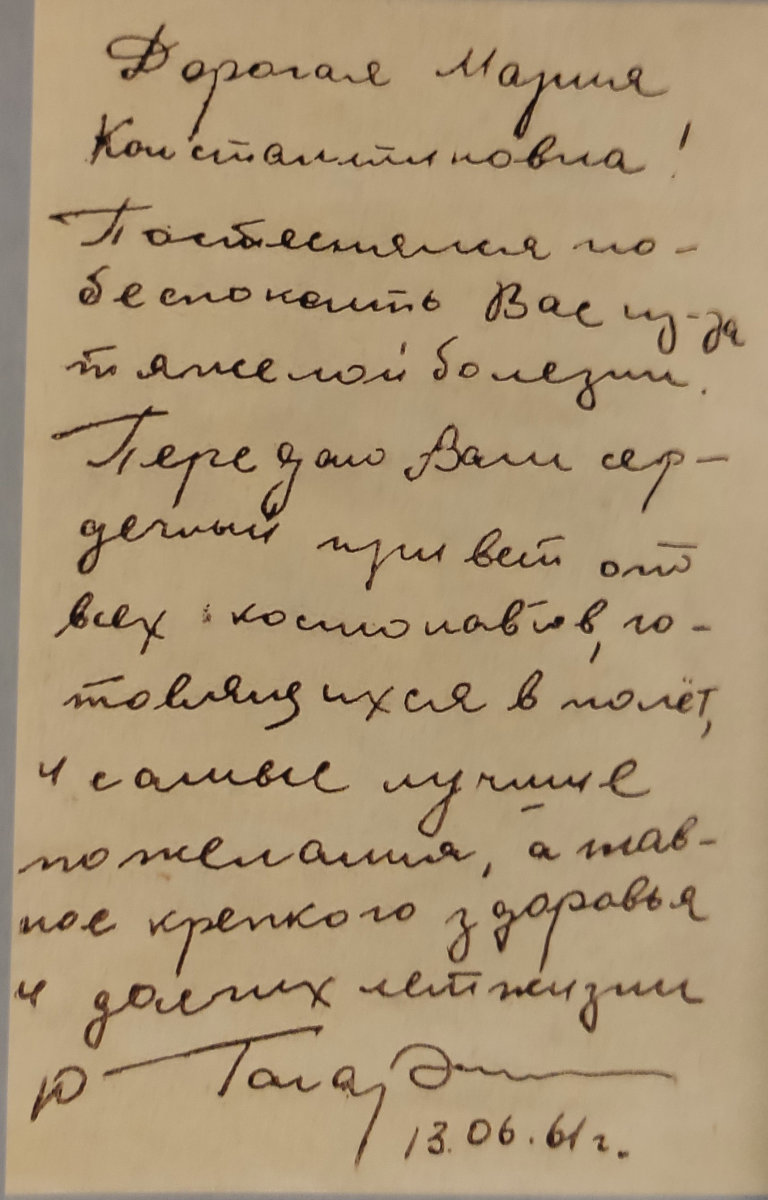 Дорогая Мария
Константиновна!
Постеснялся по-
беспокоить Вас из-за
тяжелой болезни.
Передаю Вам сер-
дечный привет от
всех космонавтов, го-
товящихся в полёт,
и самые лучшие
пожелания, а глав-
ное крепкого здоровья
и долгих лет жизни
Ю Гагарин
13.06.61 г.